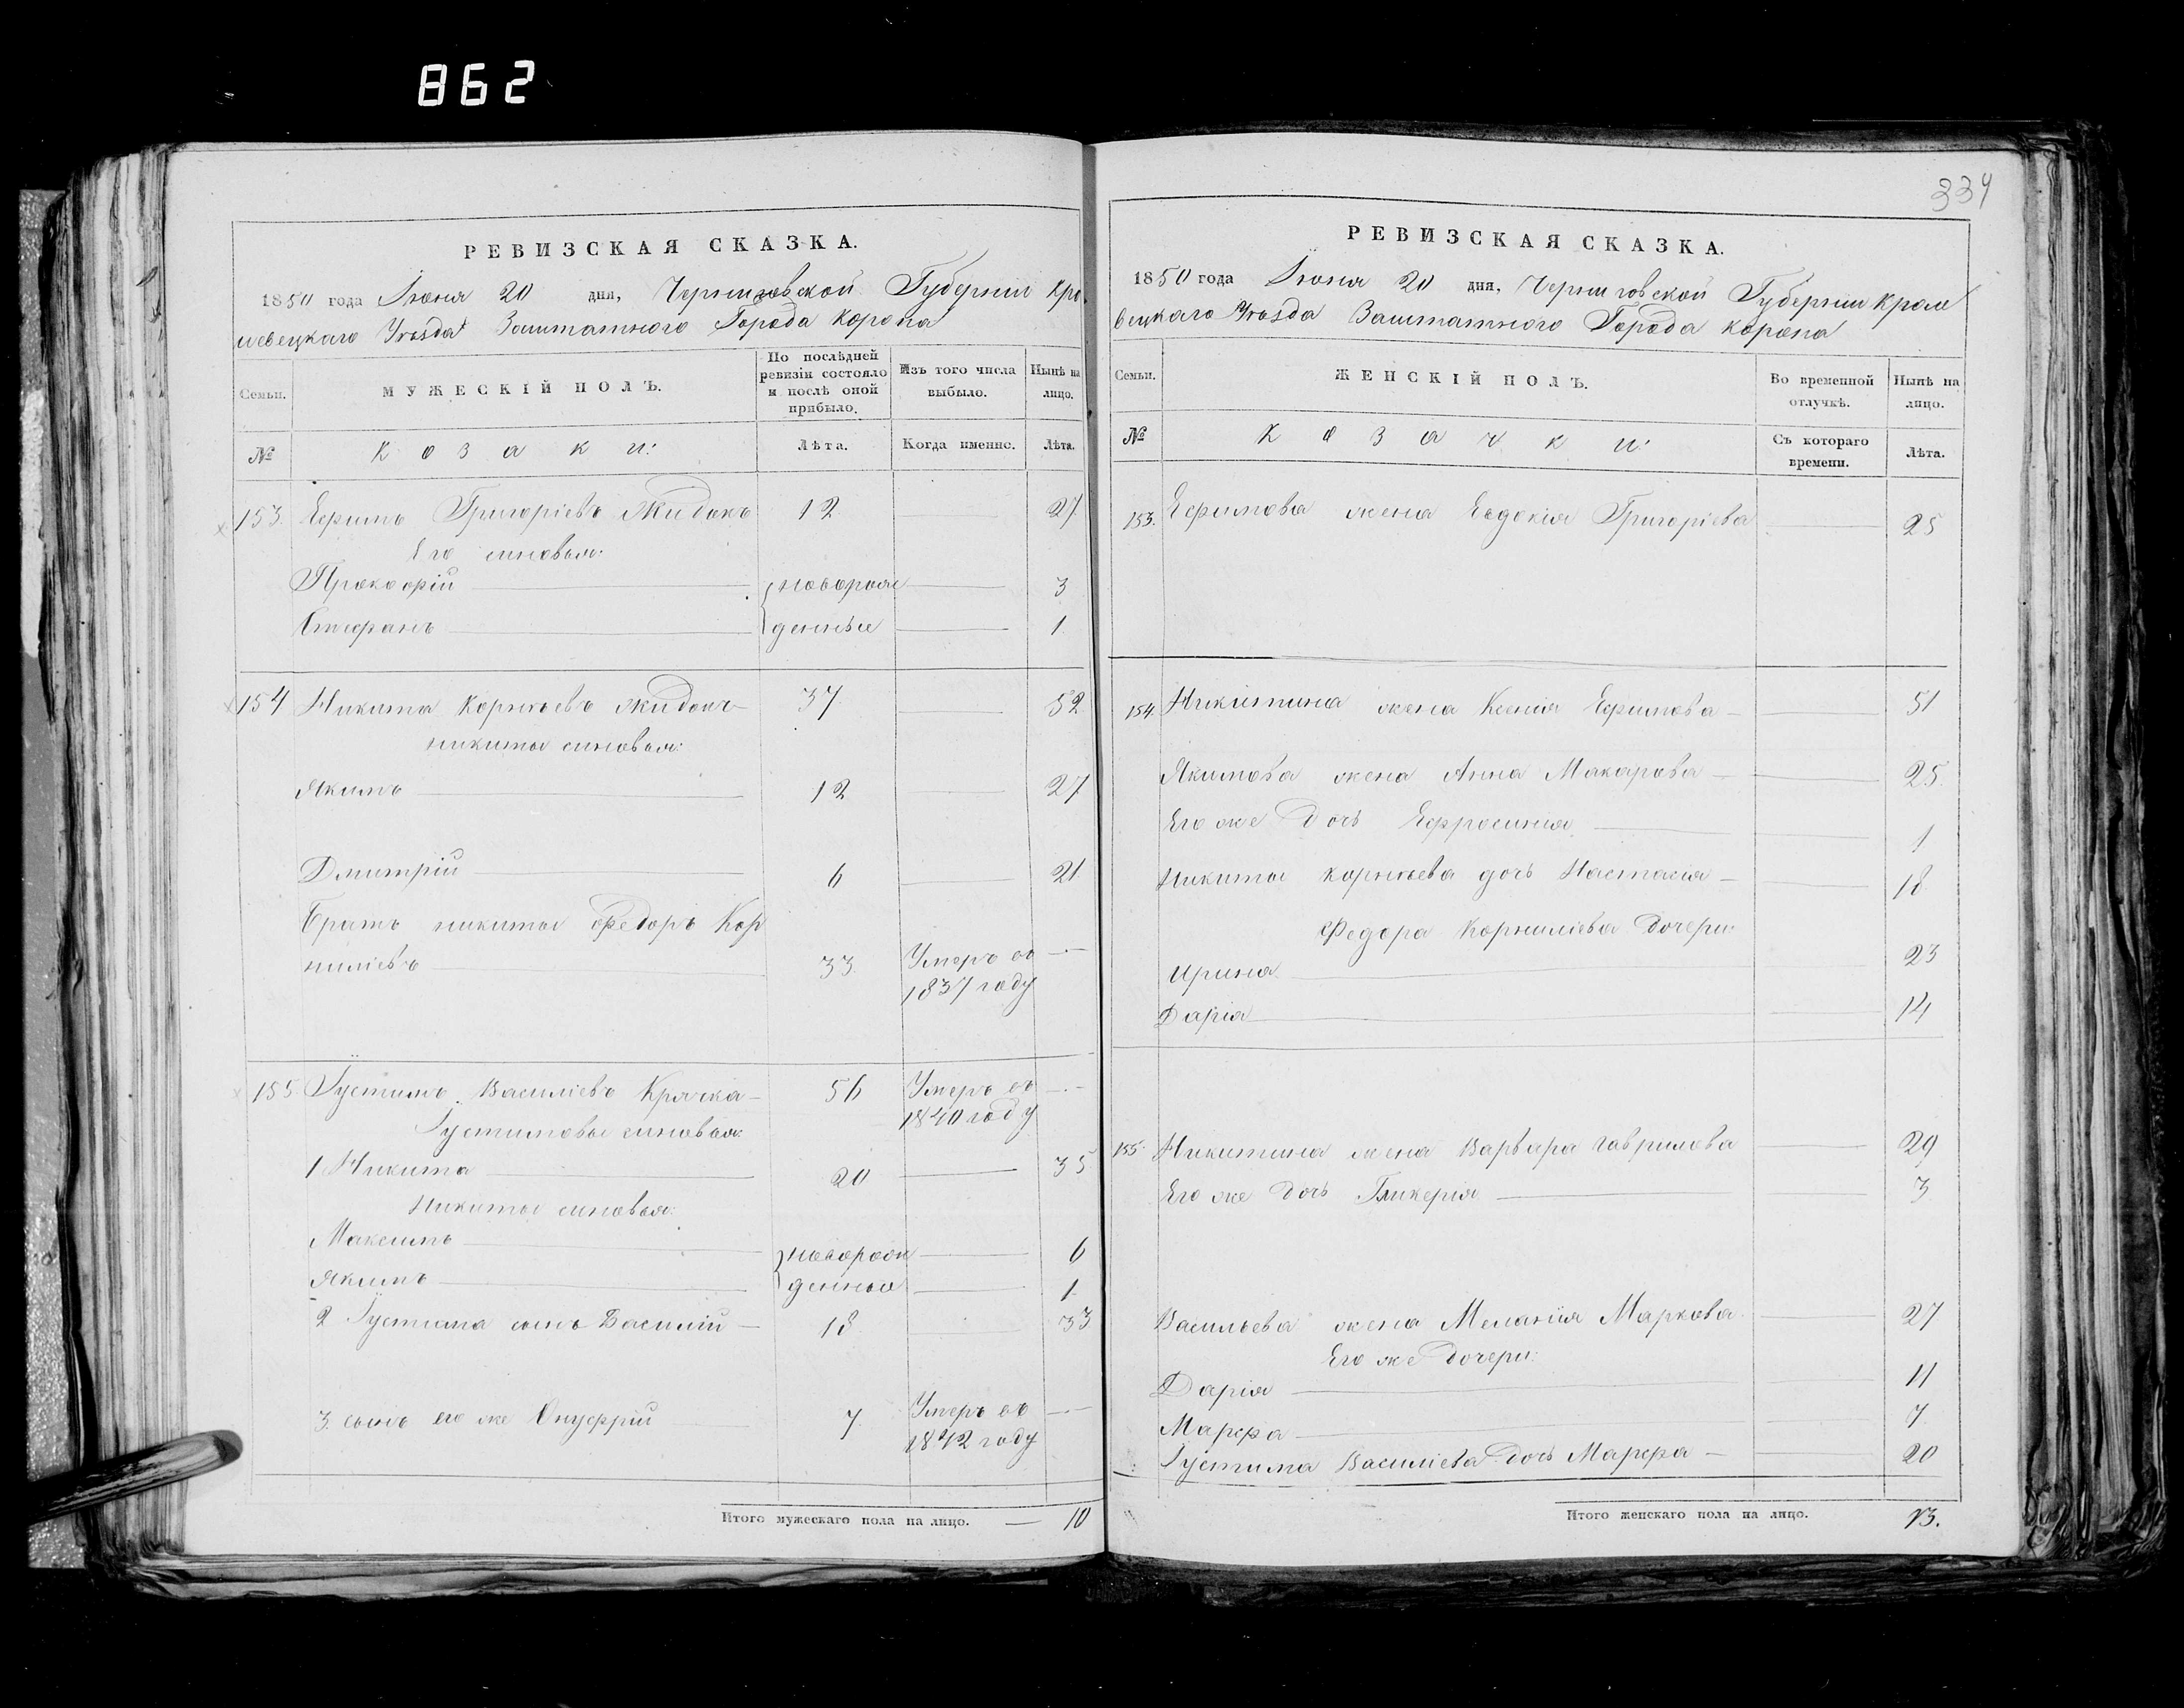 862
РЕВИЗСКАЯ СКАЗКА.
1850 года Іюня 20 дня, Черниговской Губерніи Кро
левецкаго Уѣзда Заштатного Города Коропа
Семьи.
МУЖЕСКІЙ ПОЛЪ.
По послѣдней ревизіи состояло и послѣ оной прибыло.
Изъ того числа выбыло.
Нынѣ на лицо.
№
Козаки:
Лѣта.
Когда именно.
Лѣта.
153. Ефимъ Григоріевъ Жидокъ 12 27
Его сыновья:
Прокофій новорож 3
Стефанъ денные 1
154 Никита Корнѣевъ Жидокъ 37 52
Никиты сыновья:
Якимъ 12 27
Дмитрій 6 21
Братъ Никиты Федоръ Кор
ниліевъ 33 Умеръ въ
1837 году
155 Іустимъ Василіевъ Крячка 56 Умеръ въ
1840 году
Іустимовы сыновья:
1 Никита 20 35
Никиты сыновья:
Максимъ новорож 6
Якимъ денные 1
2 Іустима сынъ Василій 18 33
3. сынъ его же Онуфрій 7 Умеръ въ
1842 году
Итого мужескаго пола на лицо. — 10
334
РЕВИЗСКАЯ СКАЗКА.
1850 года Іюня 20 дня, Черниговской Губерніи Крол
вецкаго Уѣзда Заштатного Города Коропа
Семьи.
ЖЕНСКІЙ ПОЛЪ.
Во временной отлучкѣ.
Нынѣ на лицо.
№
Козачки:
Съ котораго времени.
Лѣта.
153. Ефимова жена Евдокія Григоріева 25
154. Никитина жена Ксенія Ефимова 51
Якимова жена Анна Макарова 25
Его же дочь Ефросинія 1
Никиты Корнѣева дочь Настасія 18
Федора Корниліева дочери:
Ирина 23
Дарія 14
155. Никитина жена Варвара Гаврилова 29
Его же дочь Гликерія 3
Васильева жена Меланія Маркова 27
Его же дочери:
Дарія 11
Марфа 7
Іустима Василіева дочь Марфа 20
Итого женскаго пола на лицо. 13.